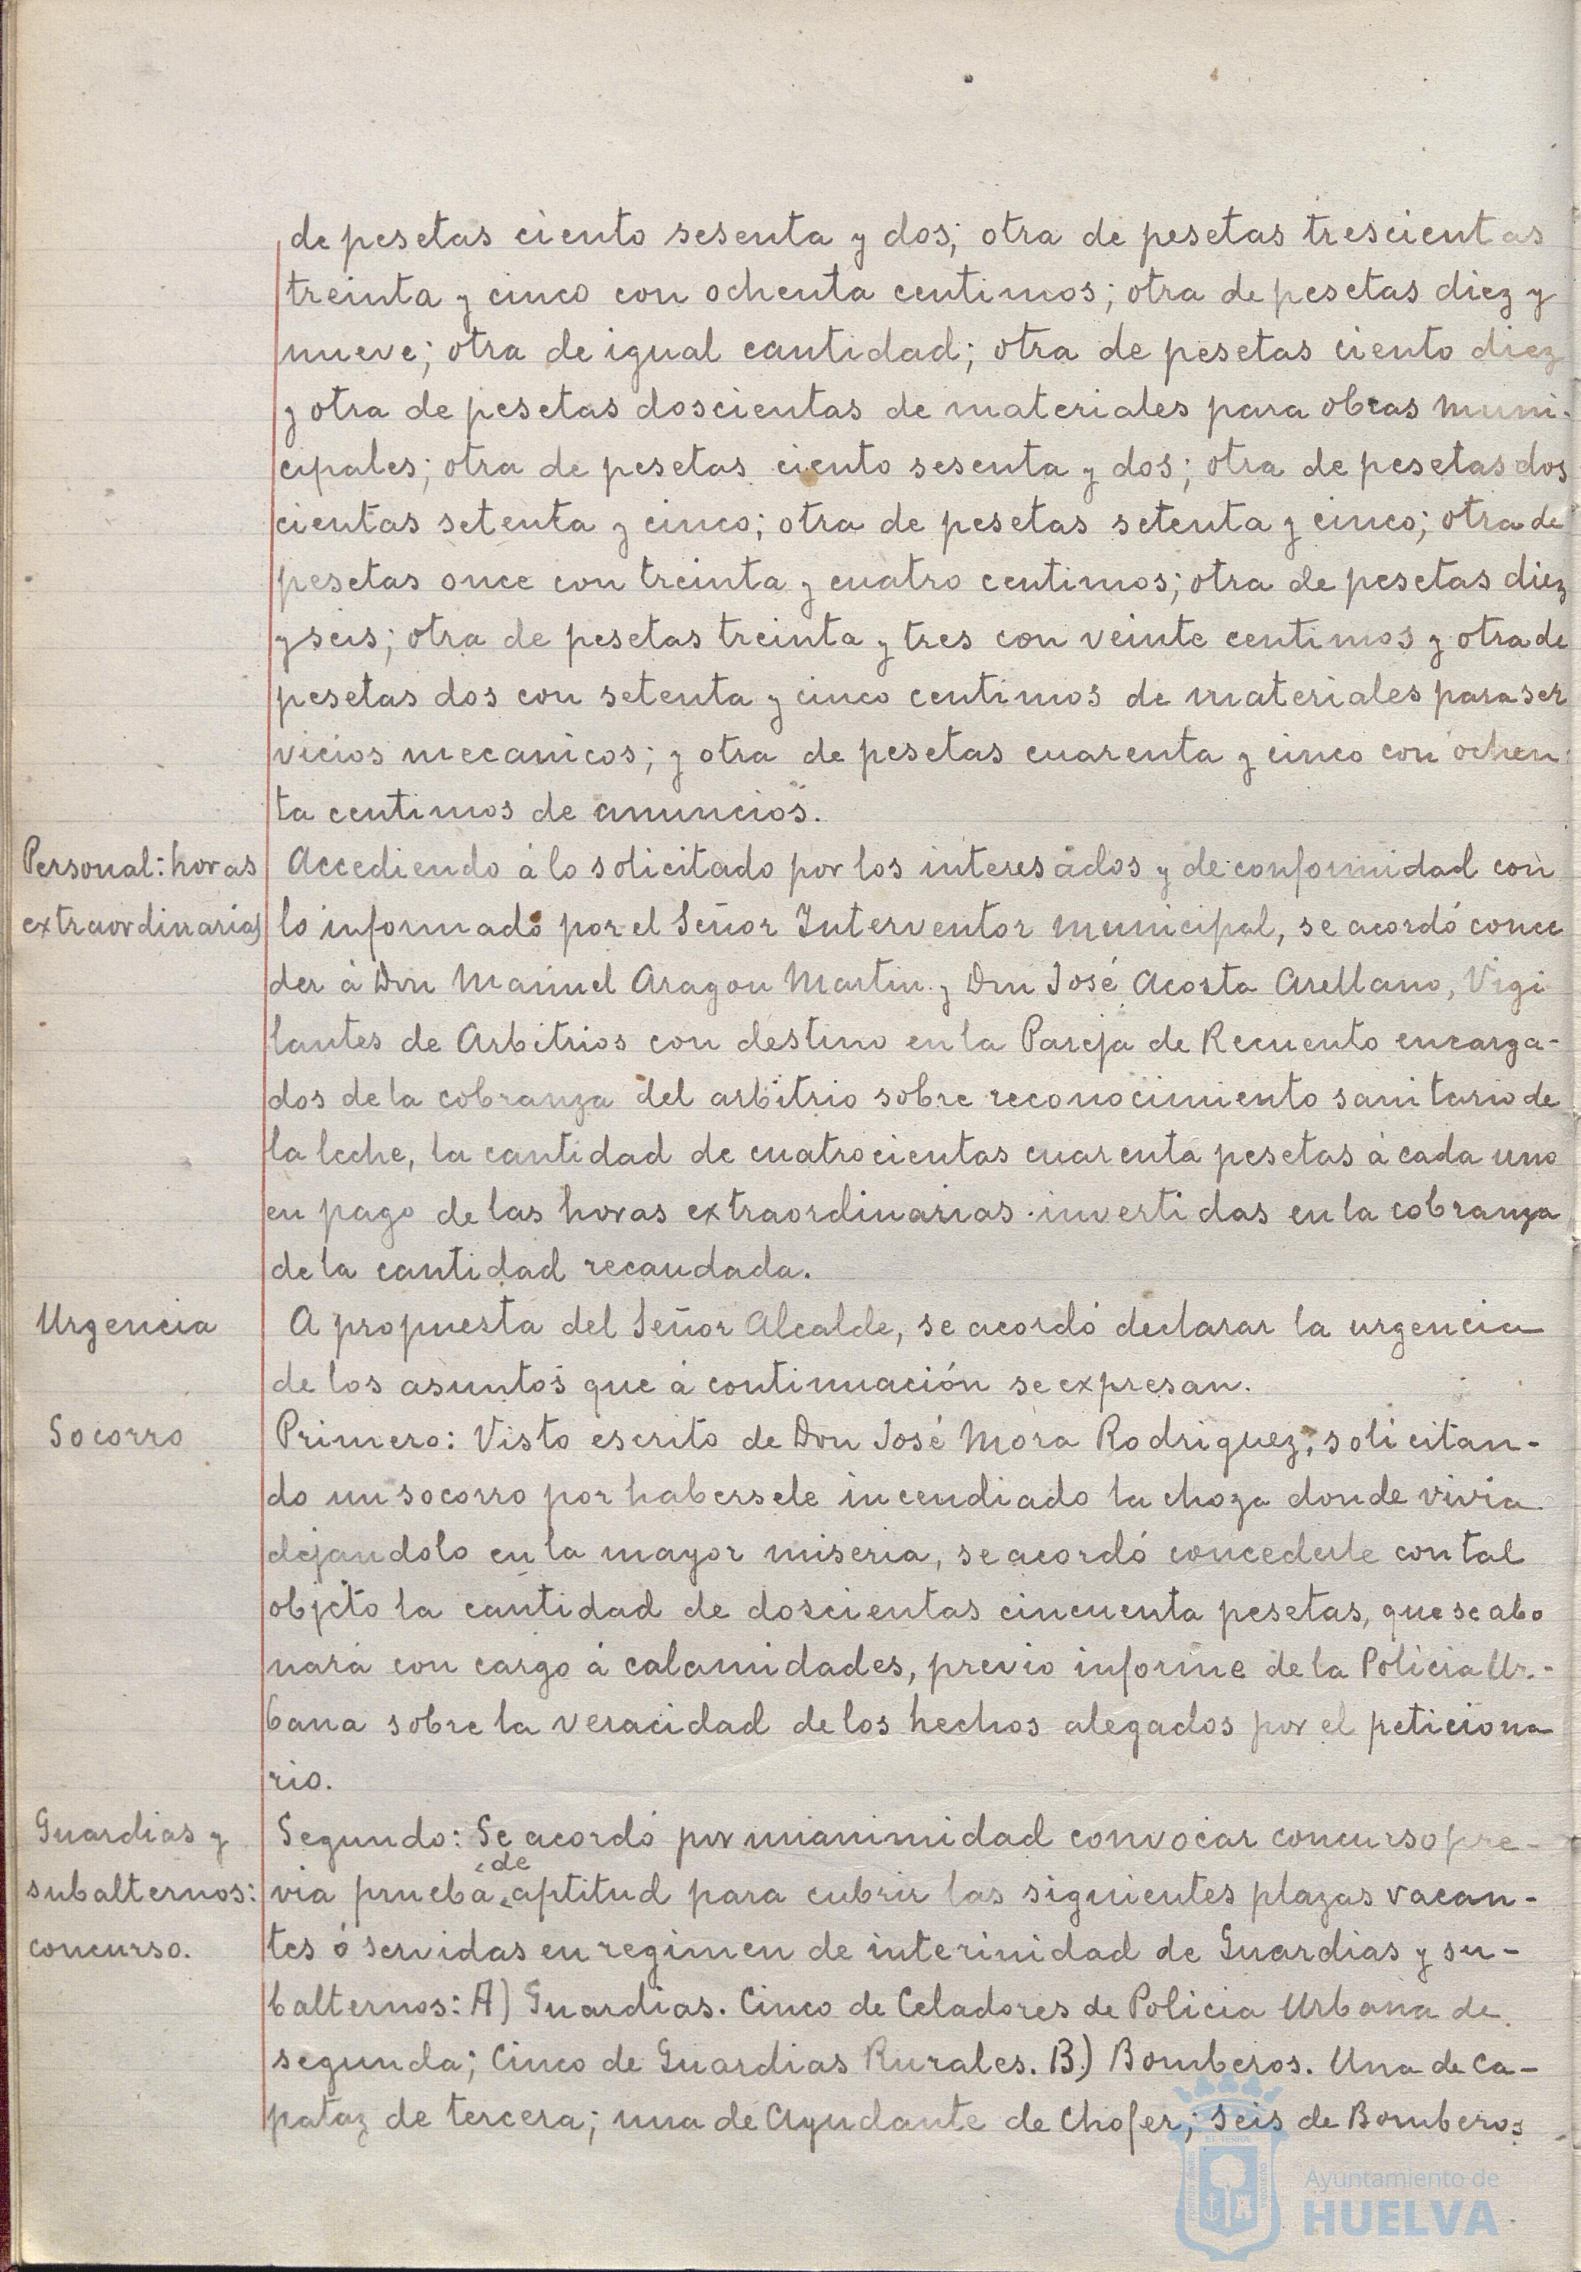 de pesetas ciento sesenta y dos; otra de pesetas trescientas
treinta y cinco con ochenta centimos; otra de pesetas diez y
nueve; otra de igual cantidad; otra de pesetas ciento diez
y otra de pesetas doscientas de materiales para obras muni-
cipales; otra de pesetas ciento sesenta y dos; otra de pesetas dos
cientas setenta y cinco; otra de pesetas setenta y cinco; otra de
pesetas once con treinta y cuatro centimos; otra de pesetas diez
y seis; otra de pesetas treinta y tres con veinte centimos y otra de
pesetas dos con setenta y cinco centimos de materiales para ser
vicios mecanicos; y otra de pesetas cuarenta y cinco con ochen
ta centimos de anuncios.
Personal: horas
extraordinarias
Accediendo á lo solicitado por los interesados y de conformidad con
lo informado por el Señor Interventor municipal, se acordó conce
der á Don Manuel Aragon Martin y Don José Acosta Arellano, Vigi
lantes de Arbitrios con destino en la Pareja de Recuento encarga-
dos de la cobranza del arbitrio sobre reconocimiento sanitario de
la leche, la cantidad de cuatrocientas cuarenta pesetas á cada uno
en pago de las horas extraordinarias invertidas en la cobranza
de la cantidad recaudada.
Urgencia
A propuesta del Señor Alcalde, se acordó declarar la urgencia
de los asuntos que á continuación se expresan.
Socorro
Primero: Visto escrito de Don José Mora Rodriguez, solicitan-
do un socorro por habersele incendiado la choza donde vivia
dejandolo en la mayor miseria, se acordó concederle con tal
objeto la cantidad de doscientas cincuenta pesetas, que se abo
nará con cargo á calamidades, previo informe de la Policia Ur-
bana sobre la veracidad de los hechos alegados por el peticiona
rio.
Guardias y
subalternos:
concurso.
Segundo: Se acordó por unanimidad convocar concurso pre-
via prueba de aptitud para cubrir las siguientes plazas vacan-
tes ó servidas en regimen de interinidad de Guardias y su-
balternos: A) Guardias. Cinco de Celadores de Policia Urbana de
segunda; Cinco de Guardias Rurales. B) Bomberos. Una de Ca-
pataz de tercera; una de Ayudante de Chofer; seis de Bomberos
Ayuntamiento de
HUELVA